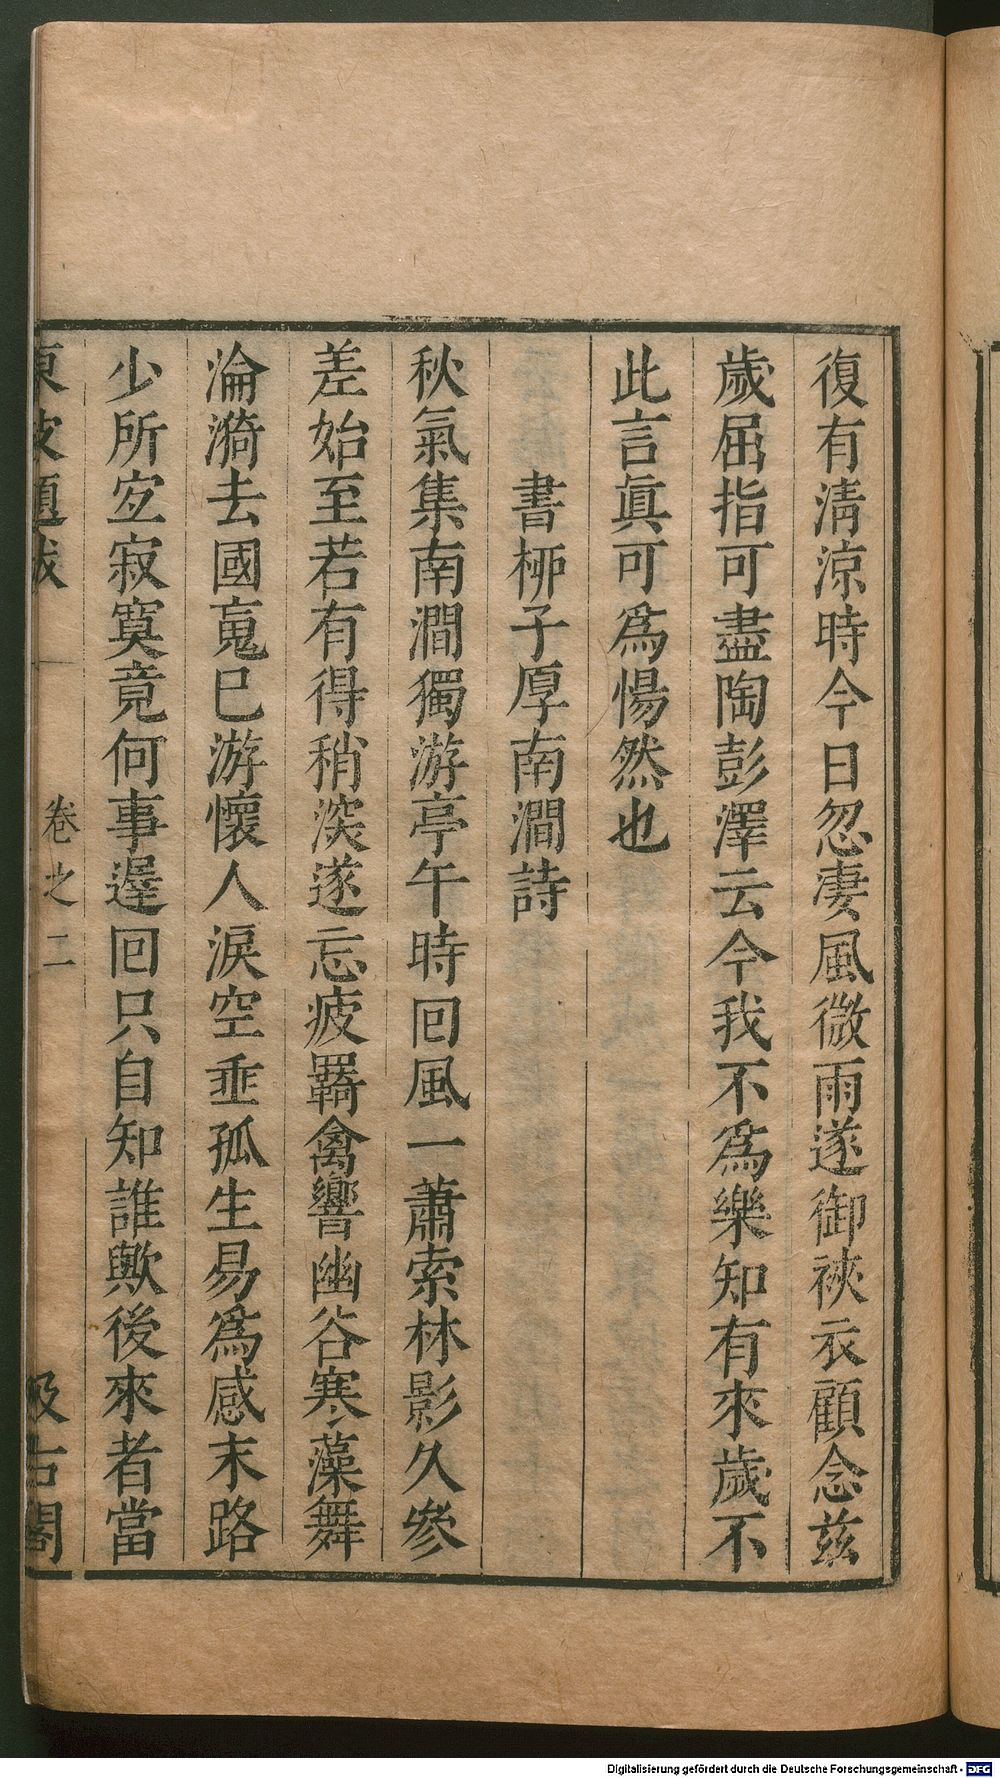 復有淸涼時今日忽凄風微雨遂御裌衣顧念兹
歲屈指可盡陶彭澤云今我不爲樂知有來歲不
此言眞可爲惕然也
書栁子厚南澗詩
秋氣集南澗獨游亭午時回風一蕭索林影久參
差始至若有得稍深遂忘疲羇禽響幽谷寒藻舞
淪漪去國䰟巳游懷人淚空垂孤生易爲感末路
少所宜寂寞竟何事遅回只自知誰歟後來者當
東坡題跋
卷之二
汲古閣
Digitalisierung gefördert durch die Deutsche Forschungsgemeinschaft - DFG